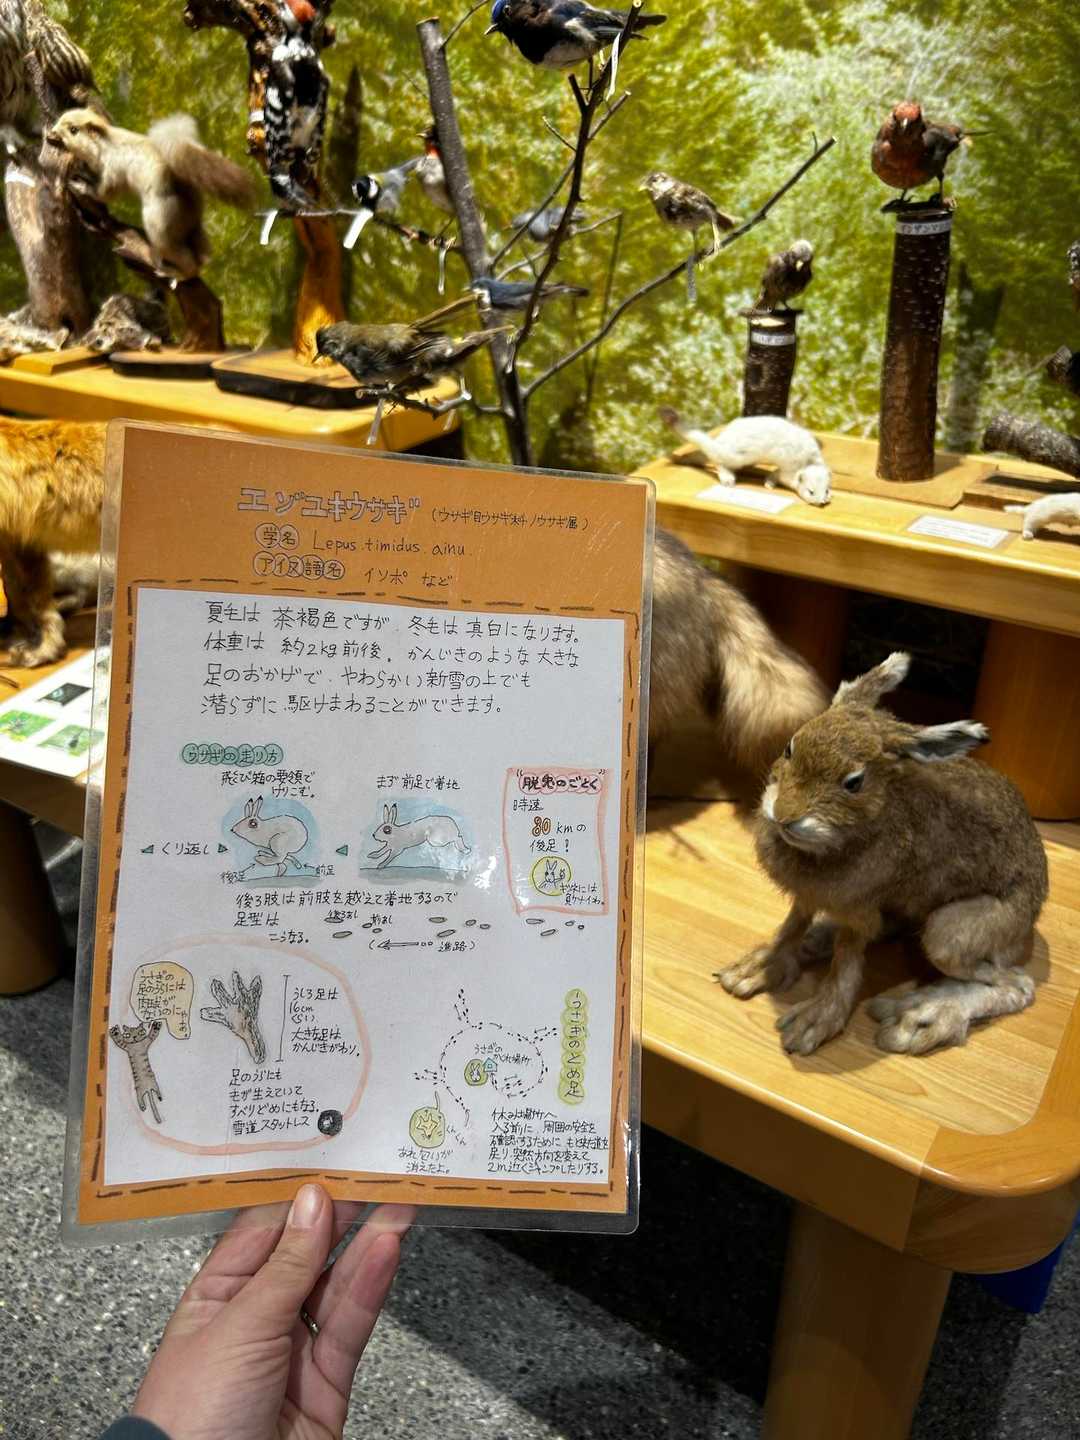 エゾユキウサギ (ウサギ目ウサギ科ノウサギ属)
学名 Lepus.timidus.ainu.
アイヌ語名 イソポ など
夏毛は 茶褐色ですが 冬毛は 真白になります。
体重は 約2kg前後。かんじきのような 大きな
足のおかげで、やわらかい新雪の上でも
潜らずに 駆けまわることができます。
ウサギの走り方
飛び箱の要領で
けりこむ。
まず 前足で着地
くり返し
後ろ足
前足
"脱兎のごとく"
時速
80 kmの
後足!
後ろ肢は前肢を越えて着地するので
足型は
こうなる。
後ろあし
前あし
(進路)
うさぎの
足のうらには
肉球が
ないのにゃぁ
うしろ足は
16cm
ぐらい
大きな足は
かんじきがわり。
足のうらにも
毛が生えていて
すべりどめにもなる。
雪道スタットレス
うさぎのとめ足
うさぎの
かくれ場所
くん
くん
あれ匂いが
消えたよ。
休み場所へ
入る前に、周囲の安全を
確認するために もと来た道を
戻り、突然方向を変えて
2m近くジャンプしたりする。